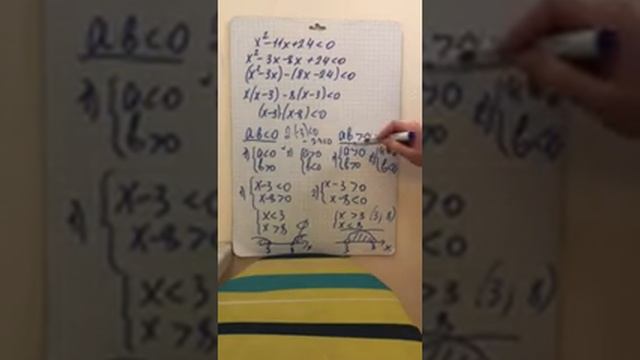 x² - 11x + 24 < 0
x² - 3x - 8x + 24 < 0
(x² - 3x) - (8x - 24) < 0
x(x - 3) - 8(x - 3) < 0
(x - 3)(x - 8) < 0
ab < 0 2·(-3) < 0 ab >
1) { a < 0 b > 0 2) { a > 0 b < 0 1) { a > 0 b > 0
1) { x - 3 < 0 x - 8 > 0 2) { x - 3 > 0 x - 8 < 0
{ x < 3 x > 8 { x > 3 x < 8 (3; 8)
3 8 x 3 8 x